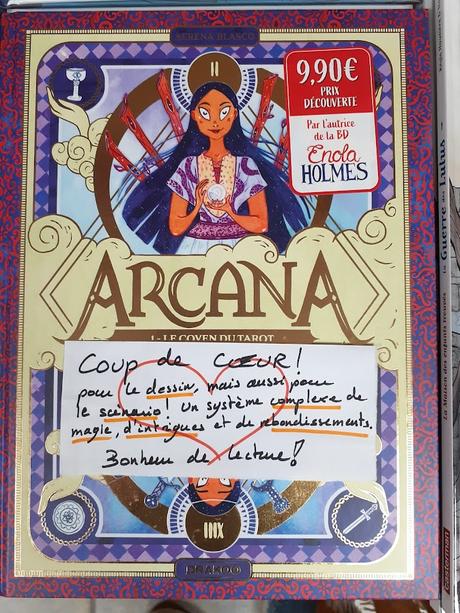 SERENA BLASCO
II
9,90€
PRIX
DÉCOUVERTE
Par l'autrice
de la BD
Enola
HOLMES
ARCANA
1 - LE COVEN DU TAROT
Coup de CŒUR !
pour le dessin, mais aussi pour
le scénario ! Un système complexe de
magie, d'intrigues et de rebondissements.
Bonheur de lecture !
DRAKOO
La Maison des enfants trouvés
La Guerre des Lulus
casterman